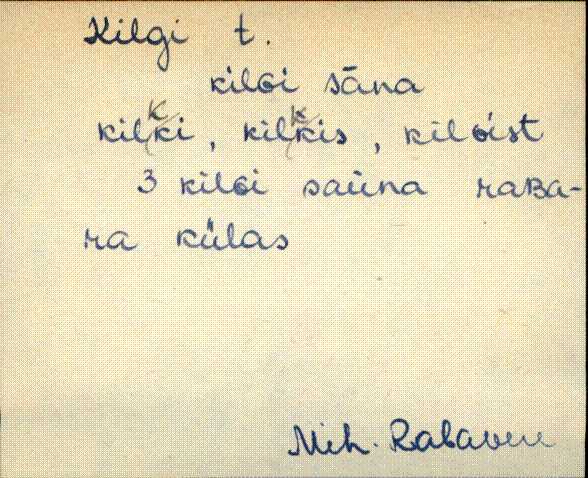 Kilgi t.
kilɢi sāna
kilKi, kilKis, kilɢist
3 kilɢi saúna raʙa-
ra külas
Mih. Rabavere